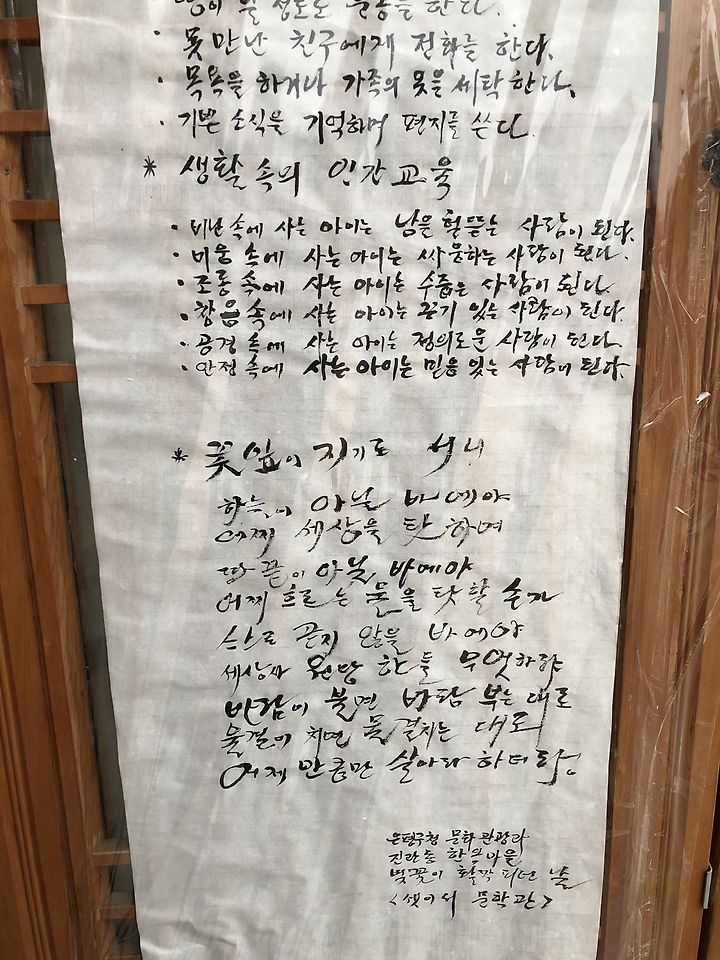 정도로 운동을 한다.
· 못만난 친구에게 전화를 한다.
· 목욕을 하거나 가족의 옷을 세탁한다.
· 기쁜 소식을 기억하며 편지를 쓴다.
* 생활속의 인간교육
· 비난 속에 사는 아이는 남을 헐뜯는 사람이 된다.
· 미움 속에 사는 아이는 싸움하는 사람이 된다.
· 조롱 속에 사는 아이는 수줍은 사람이 된다.
· 참음 속에 사는 아이는 끈기 있는 사람이 된다.
· 공경 속에 사는 아이는 정의로운 사람이 된다.
· 안정 속에 사는 아이는 믿음 있는 사람이 된다.
* 꽃잎이 지기로 서니
하늘이 아닐 바에야
어찌 세상을 탓하며
땅 끝이 아닐 바에야
어찌 흐르는 물을 탓할 손가
스스로 곧지 않을 바에야
세상사 원망 한들 무엇하랴
바람이 불면 바람 부는 대로
물결이 치면 물결치는 대로
어제 만큼만 살아라 하더라.
은평구청 문화관광과
진관동 한옥마을
벚꽃이 활짝 피던 날
<셋이서 문학관>